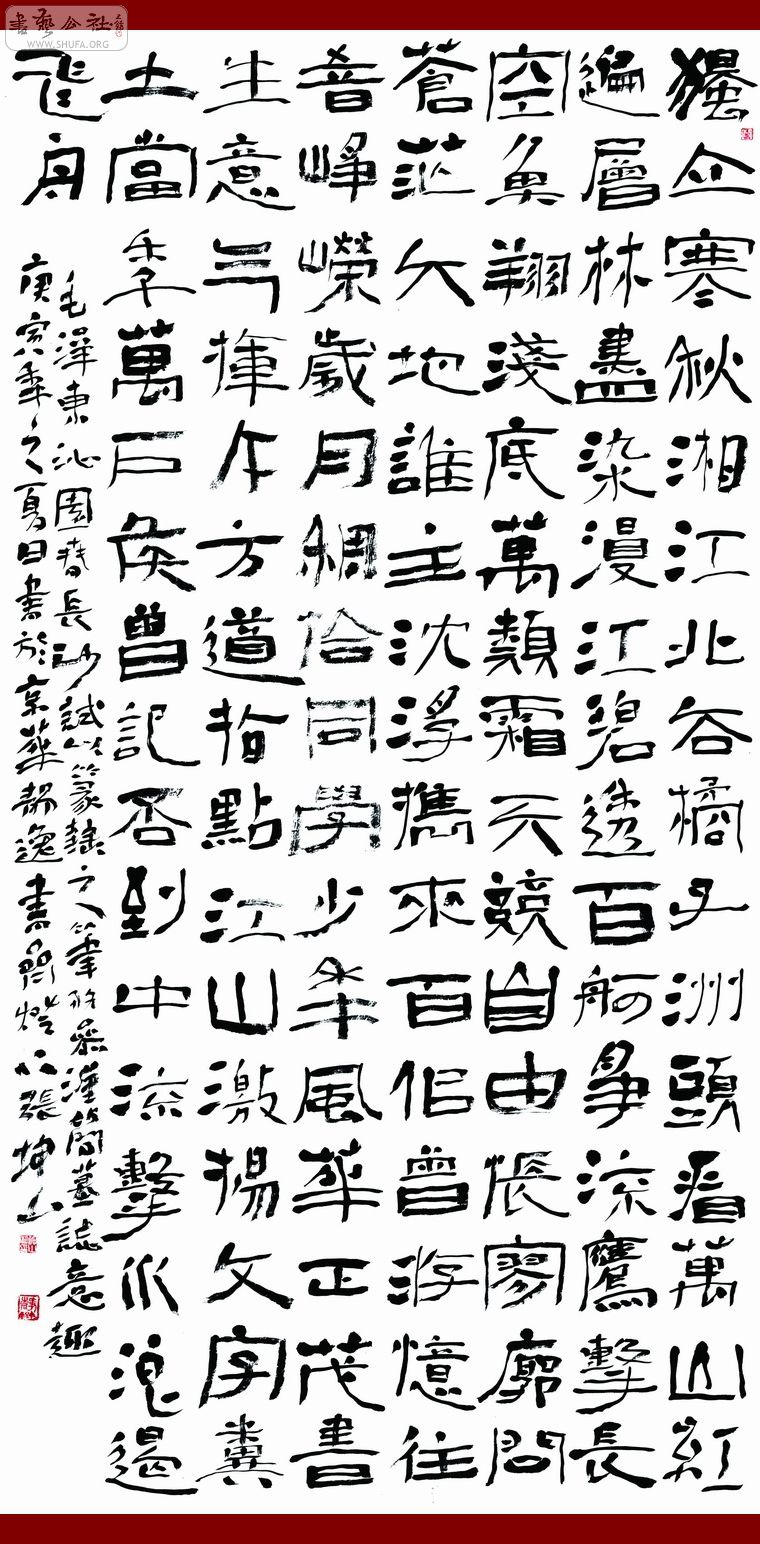 書藝公社
WWW.SHUFA.ORG
獨立寒秋湘江北去橘子洲頭看萬山紅
遍層林盡染漫江碧透百舸爭流鷹擊長
空魚翔淺底萬類霜天競自由悵寥廓問
蒼茫大地誰主沈浮攜來百侶曾游憶往
昔崢嶸歲月稠恰同學少年風華正茂書
生意气揮斥方遒指點江山激揚文字糞
土當年萬戶侯曾記否到中流擊水浪遏
飛舟
毛澤東沁園春長沙試以篆隸之筆參漢簡墓誌意趣
庚寅年之夏日書於京華靜逸書齋燈下張坤山